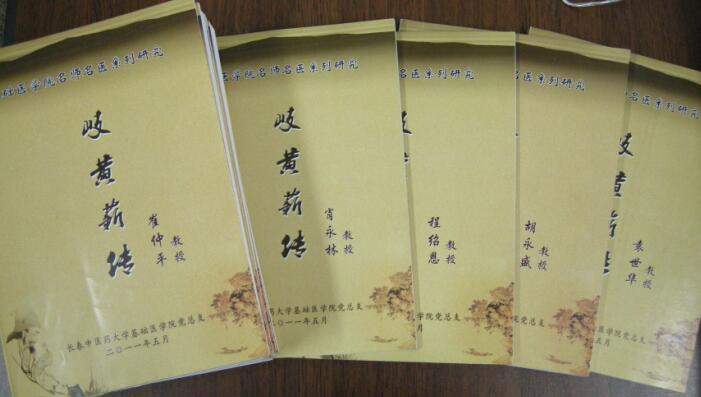 础医学院名师名医系列研究
岐黄薪传
崔仲平 教授
长春中医药大学基础医学院党总支
二〇一一年五月
医学院名师名医系列研究
岐黄薪传
肖永林 教授
大学基础医学院党总支
二〇一一年五月
名医系列研究
程绍恩 教授
医学院党总支
月
名医系列研究
胡永盛 教授
学院党总支
名医系列研究
岐黄薪传
袁世华 教授
院党总支